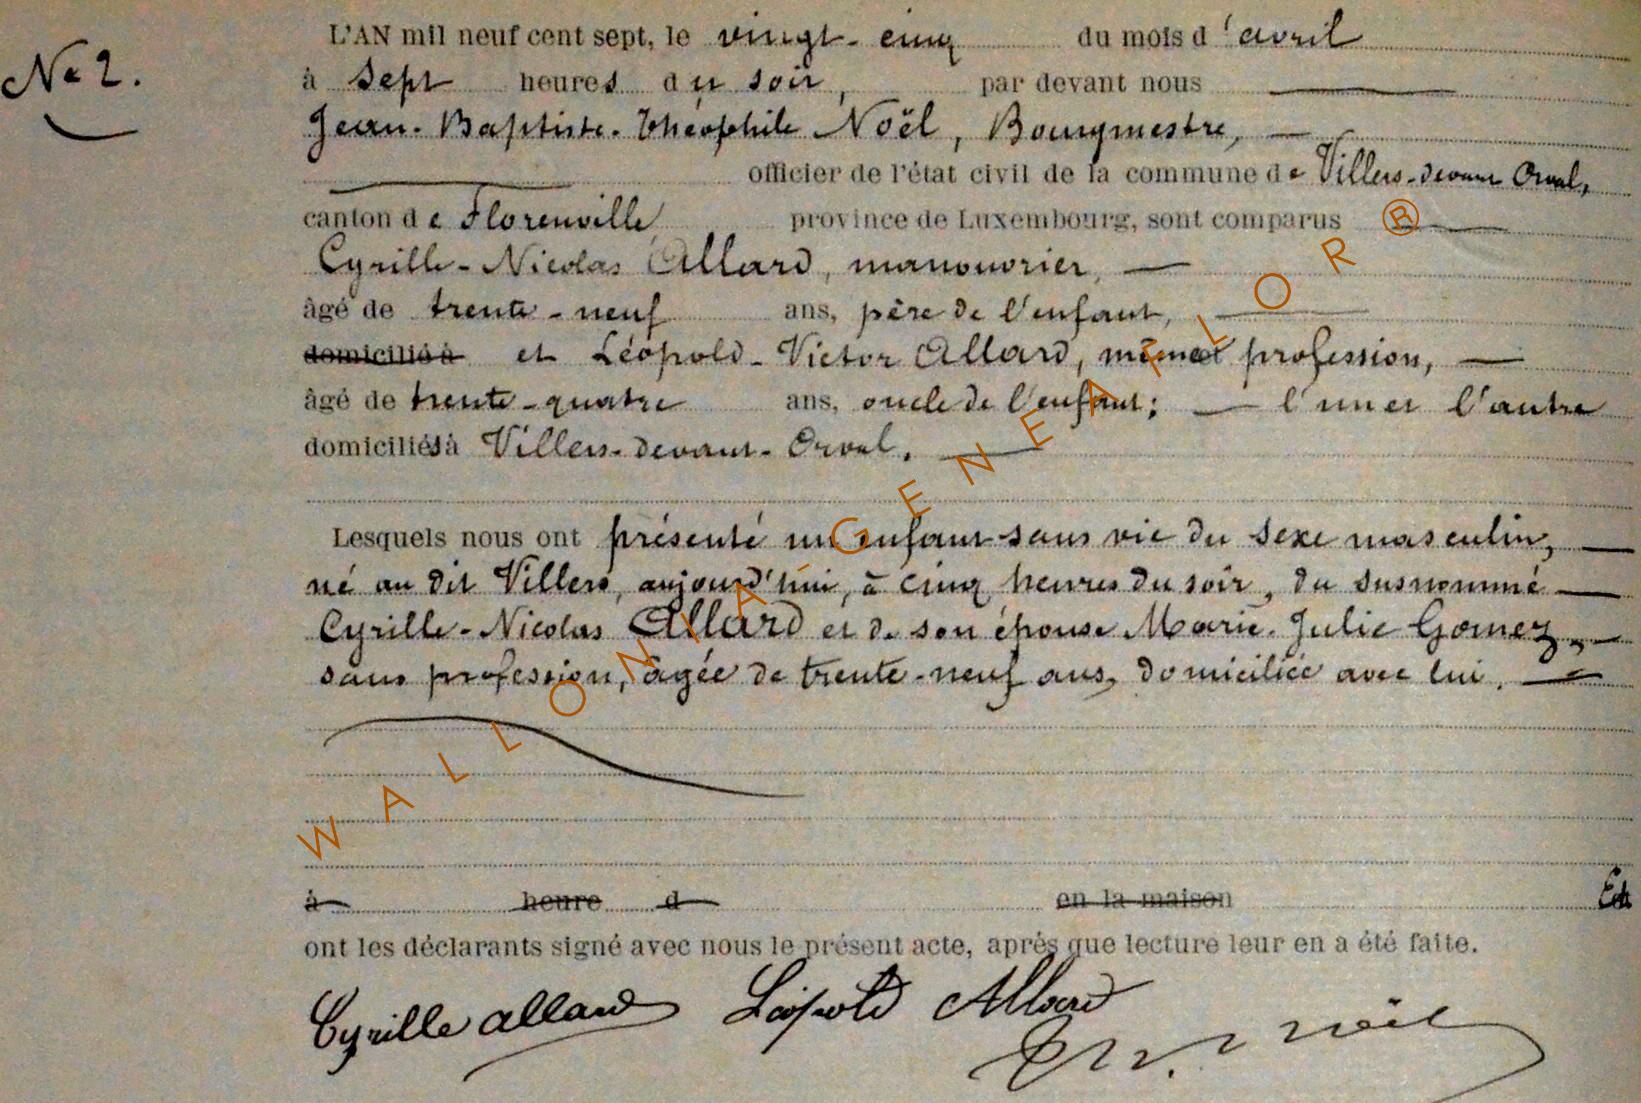 L'AN mil neuf cent sept, le vingt-cinq du mois d'avril
No 2.
à sept heures du soir, par devant nous
Jean-Baptiste-Théophile Noël, Bourgmestre,
officier de l'état civil de la commune de Villers-devant Orval,
canton de Florenville province de Luxembourg, sont comparus
Cyrille-Nicolas Allard, manouvrier,
âgé de trente-neuf ans, père de l'enfant,
domicilié à et Léopold-Victor Allard, même profession,
âgé de trente-quatre ans, oncle de l'enfant; l'un et l'autre
domiciliés à Villers-devant-Orval.
Lesquels nous ont présenté un enfant sans vie du sexe masculin,
né au dit Villers, aujourd'hui, à cinq heures du soir, du susnommé
Cyrille-Nicolas Allard et de son épouse Marie-Julie Gomez,
sans profession, âgée de trente-neuf ans, domiciliée avec lui.
à heure d en la maison Et
ont les déclarants signé avec nous le présent acte, après que lecture leur en a été faite.
Cyrille allard Léopold Allard
Noël
WALLONIA GENEAFLOR®